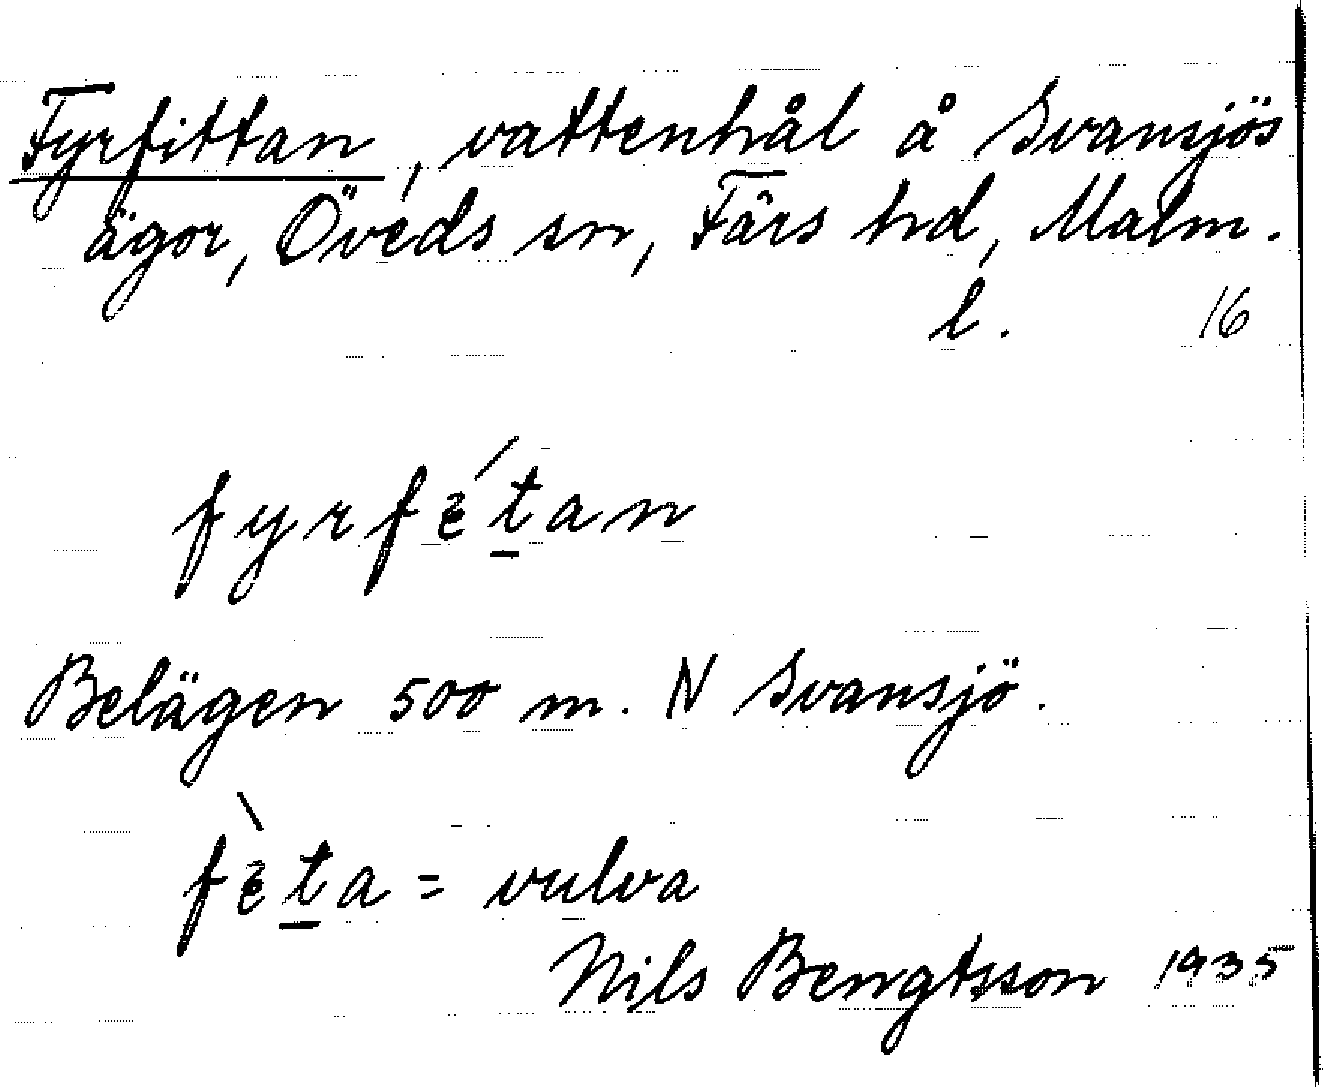 Fyrfittan, vattenhål å Svansjös
ägor, Öveds sn, Färs hd, Malm.
l. 16
fyrfétan
Belägen 500 m. N Svansjö.
fèta = vulva
Nils Bengtsson 1935